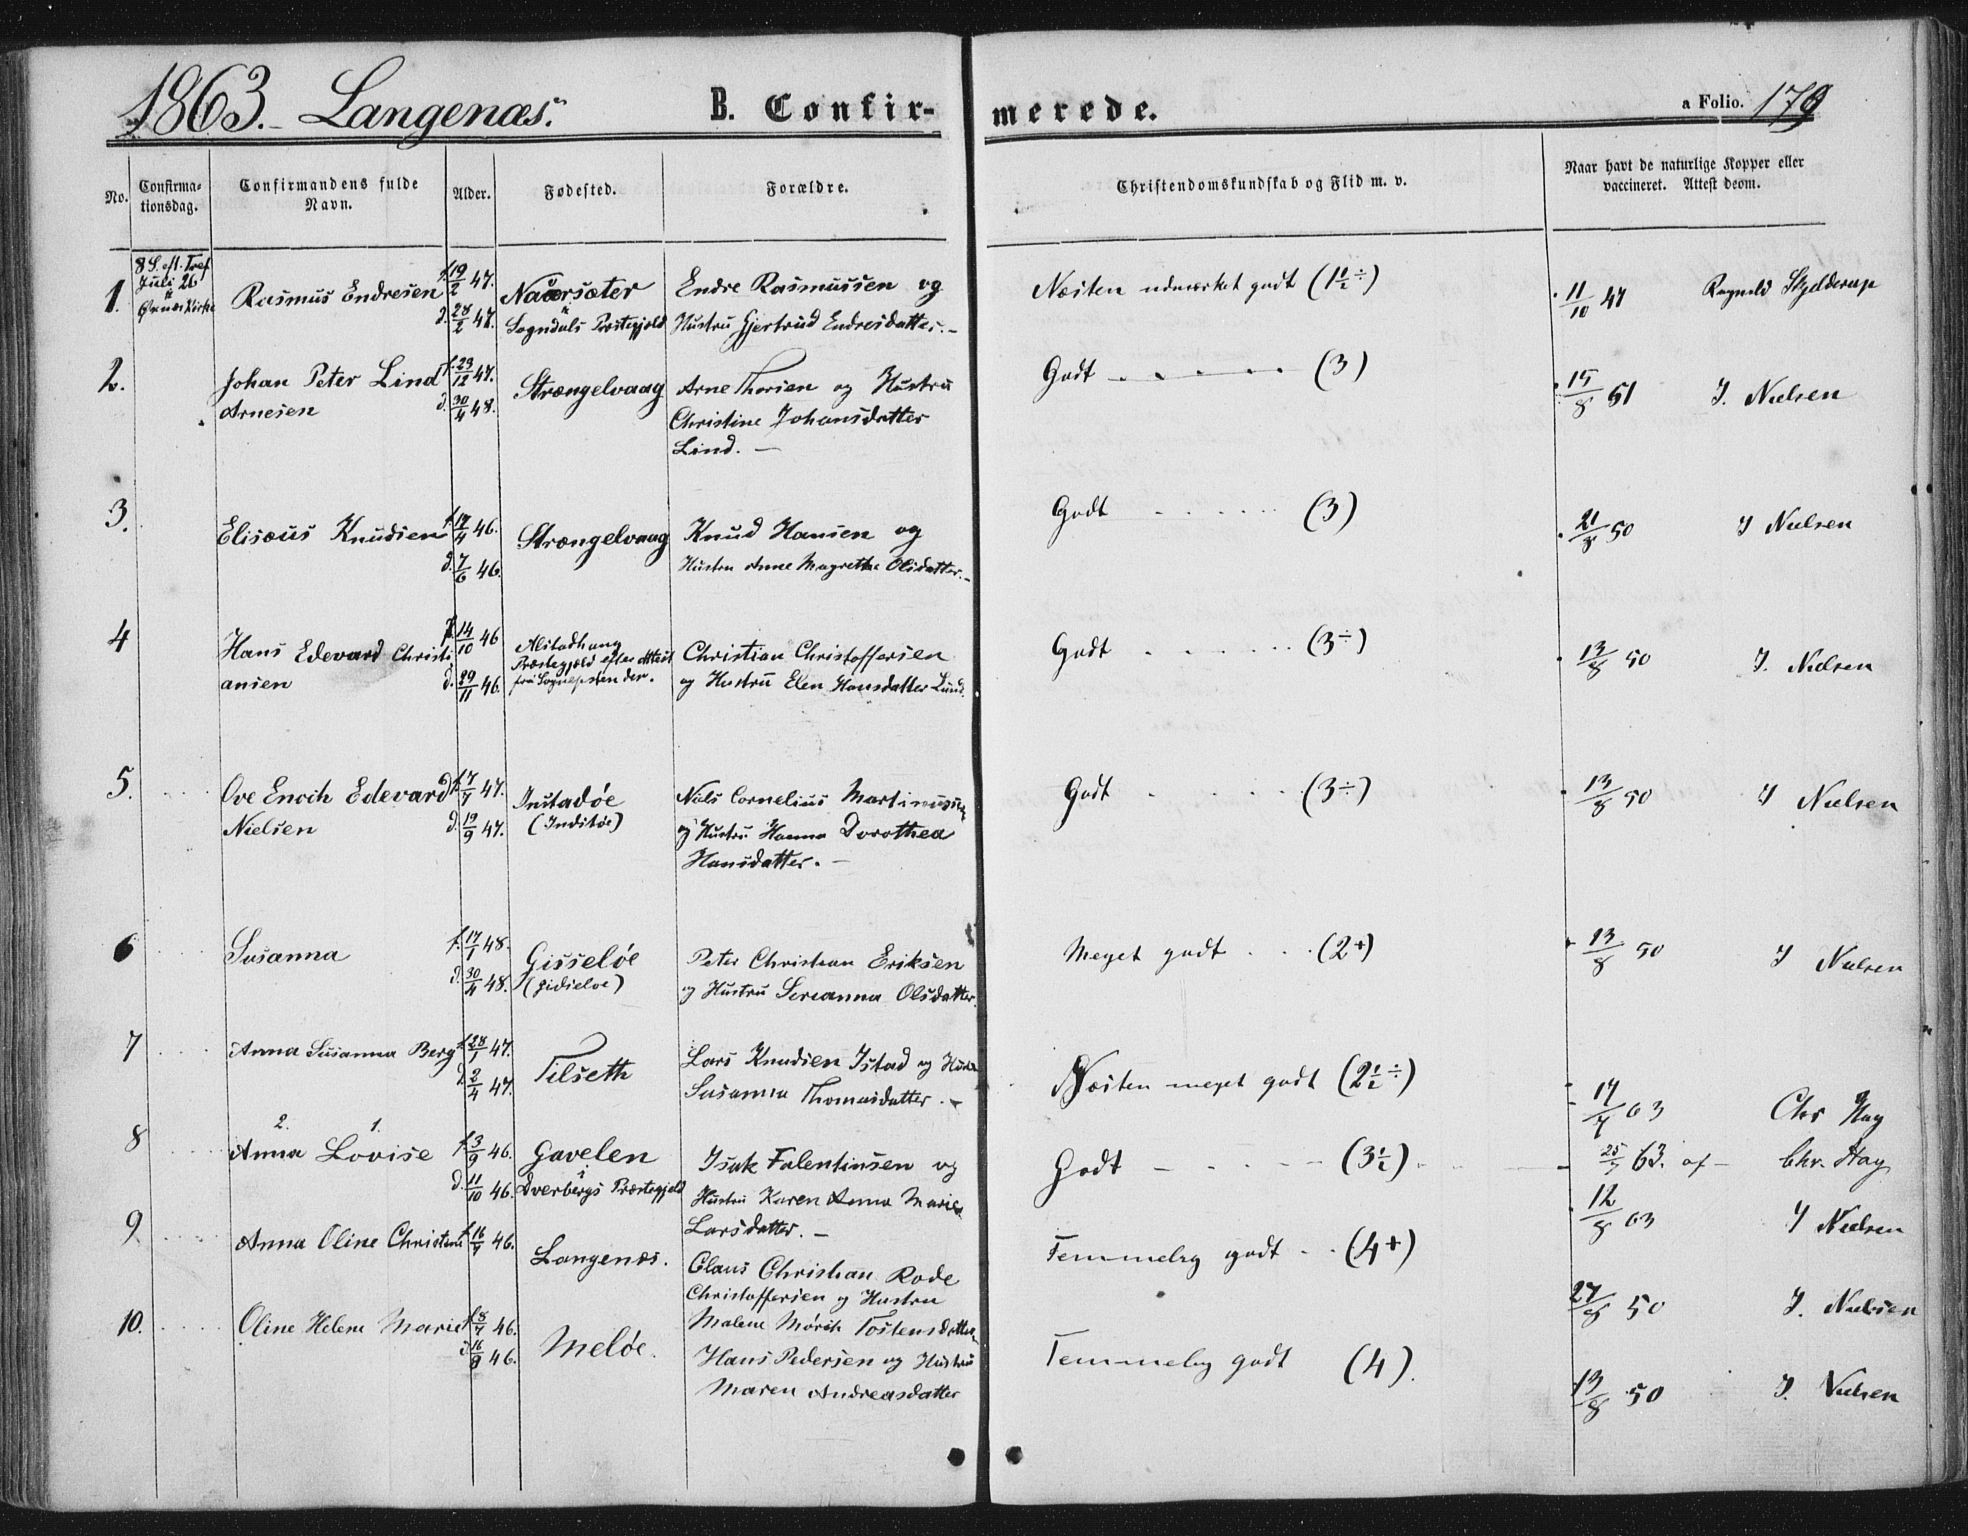 1863. Langenæs.
B. Confirmerede.
a Folio. 179
No.
Confirmationsdag.
Confirmandens fulde Navn.
Alder.
Fødested.
Forældre.
Christendomskundskab og Flid m. v.
Naar havt de naturlige Kopper eller
vaccineret. Attest derom.
1.
8 S. eft. Tref
Juli 26
i
Øxnæs Kirke
Rasmus Endresen
f. 19/2 47.
d. 28/2 47.
i
Sogndals Præstegjeld
Endre Rasmussen og
Hustru Gjertrud Endresdatter.-
Næsten udmærket godt (1½÷)
11/10 47
2.
Johan Peter Lind
Arnesen
f. 29/12 47.
d. 30/4 48.
Strængelvaag
Arne Thorsen og Hustru
Christine Johansdatter
Lind. -
Godt - - - - - (3)
15/8 51 J. Nielsen
3.
Elisæus Knudsen
f. 17/4 46.
d. 7/6 46.
Strængelvaag
Knud Hansen og
Hustru Anne Magrethe Olsdatter.-
Godt . . . . . . (3)
21/8 50 J Nielsen
4
Hans Edevard Christi
ansen
f. 14/10 46
d. 29/11 46.
Alstadhaug
Præstegjeld efter Attest
fra Sognepsten der.
Christian Christoffersen
og Hustru Elen Hansdatter Lund.
Godt . . . . . . (3÷)
13/8 50 J. Nielsen
5.
Ove Enoch Edevard
Nielsen
f. 17/7 47.
d. 19/9 47.
Instadøe
(Inditøe)
Niels Cornelius Martinussen
og Hustru Hanna Dorothea
Hansdatter. -
Godt . . . . . . (3÷)
13/8 50 J Nielsen
6
Susanna
f. 17/1 48.
d. 30/4 48.
Gisseløe
Peter Christian Eriksen
og Hustru Sereanna Olsdatter.
Meget godt . . . (2+)
13/8 50 J Nielsen
7
Anna Susanna Berg
f. 28/1 47.
d. 2/4 47.
Tilseth
Lars Knudsen Istad og Hustru
Susanna Thomasdatter. -
Næsten meget godt (2½÷)
17/7 63 Chr Hag
8
2. 1.
Anna Lovise
f. 3/9 46.
d. 11/10 46.
Gavelen
i
Dverbergs Præstegjeld
Isak Falentinsen og
Hustru Karen Anna Marie
Larsdatter. -
Godt - - - - - (3½)
25/7 63. af - Chr. Hag
12/8 63 J Nielsen
9
Anna Oline Christene
f. 16/7 46.
Langenæs.
Claus Christian Rode
Christoffersen og Hustru
Malene Mørch Tostensdatter
Temmelig godt . . (4+)
27/8 50 J. Nielsen
10.
Oline Helene Marie
f. 8/7 46.
d. 16/8 46.
Meløe.
Hans Pedersen og Hustru
Maren Andreasdatter
Temmelig godt (4).
13/8 50 J. Nielsen